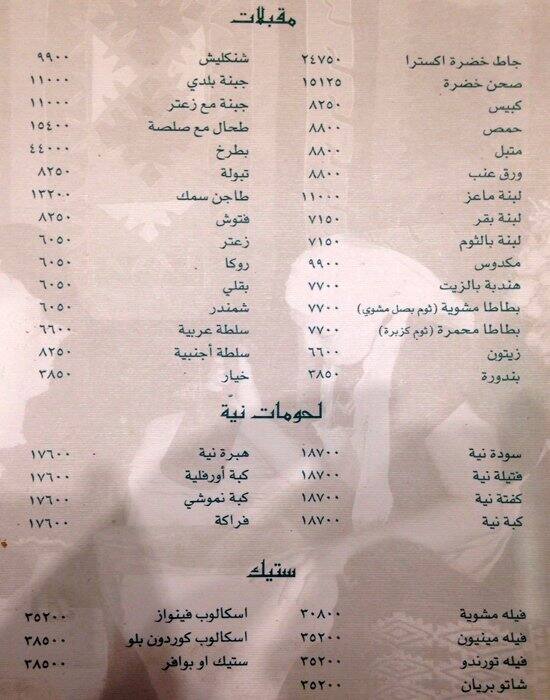 مقبلات
جاط خضرة اكسترا ٢٤٧٥٠ شنكليش ٩٩٠٠
صحن خضرة ١٥١٢٥ جبنة بلدي ١١٠٠٠
كبيس ٨٢٥٠ جبنة مع زعتر ١١٠٠٠
حمص ٨٨٠٠ طحال مع صلصة ١٥٤٠٠
متبل ٨٨٠٠ بطرخ ٤٤٠٠٠
ورق عنب ٨٨٠٠ تبولة ٨٢٥٠
لبنة ماعز ١١٠٠٠ طاجن سمك ١٣٢٠٠
لبنة بقر ٧١٥٠ فتوش ٨٢٥٠
لبنة بالثوم ٧١٥٠ زعتر ٦٠٥٠
مكدوس ٩٩٠٠ روكا ٦٠٥٠
هندبة بالزيت ٧٧٠٠ بقلي ٦٠٥٠
بطاطا مشوية (ثوم بصل مشوي) ٧٧٠٠ شمندر ٦٠٥٠
بطاطا محمرة (ثوم كزبرة) ٧٧٠٠ سلطة عربية ٦٦٠٠
زيتون ٦٦٠٠ سلطة أجنبية ٨٢٥٠
بندورة ٣٨٥٠ خيار ٣٨٥٠
لحومات نيّة
سودة نية ١٨٧٠٠ هبرة نية ١٧٦٠٠
فتيلة نية ١٨٧٠٠ كبة أورفلية ١٧٦٠٠
كفتة نية ١٨٧٠٠ كبة نموشي ١٧٦٠٠
كبة نية ١٨٧٠٠ فراكة ١٧٦٠٠
ستيك
فيله مشوية ٣٠٨٠٠ اسكالوب فينواز ٣٥٢٠٠
فيله مينيون ٣٥٢٠٠ اسكالوب كوردون بلو ٣٨٥٠٠
فيله تورندو ٣٥٢٠٠ ستيك او بوافر ٣٨٥٠٠
شاتو بريان ٣٥٢٠٠